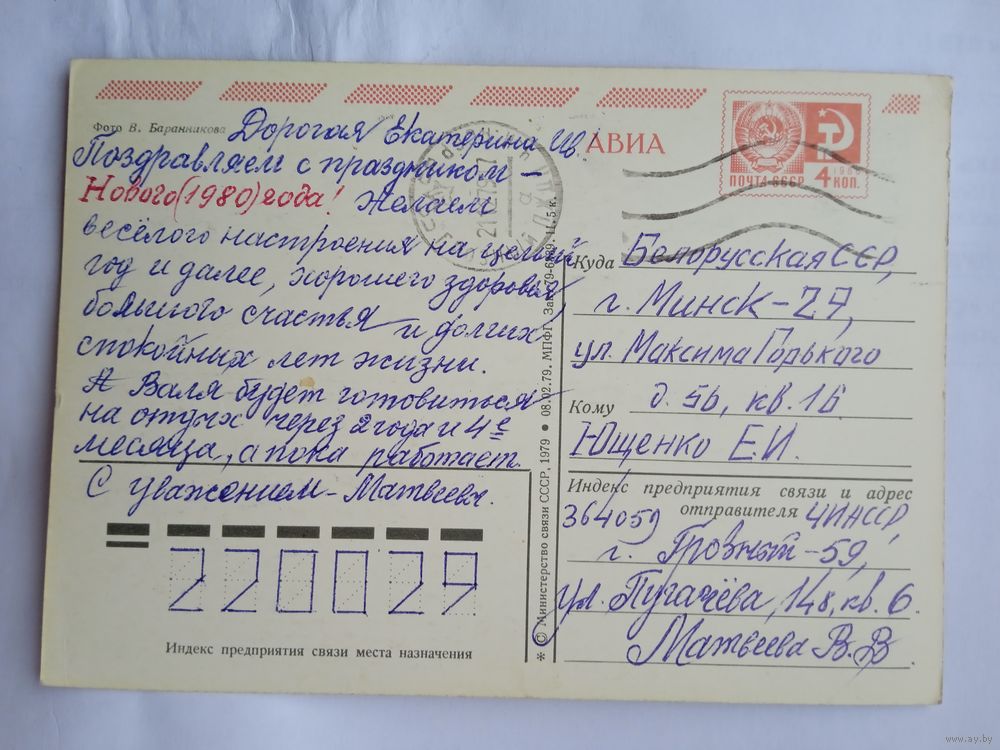 Фото В. Баранникова
Дорогая Екатерина Ив.
Поздравляем с праздником –
Нового (1980) года! Желаем
весёлого настроения на целый
год и далее, хорошего здоровья,
большого счастья и долгих,
спокойных лет жизни.
А Валя будет готовиться
на отдых через 2 года и 4е
месяца, а пока работает.
С уважением – Матвеевы.
220027
Индекс предприятия связи места назначения
АВИА
ПОЧТА СССР
1966
4 КОП.
21 12 79
* © Министерство связи СССР, 1979 ● 08.02.79. МПФГ Ц. 5 к.
Куда Белорусская ССР,
г. Минск-27,
ул. Максима Горького
д. 56, кв. 16
Кому
Ющенко Е.И.
Индекс предприятия связи и адрес
отправителя ЧИАССР,
364059
г. Грозный-59,
ул. Пугачёва, 148, кв. 6.
Матвеева В.В.
www.ay.by